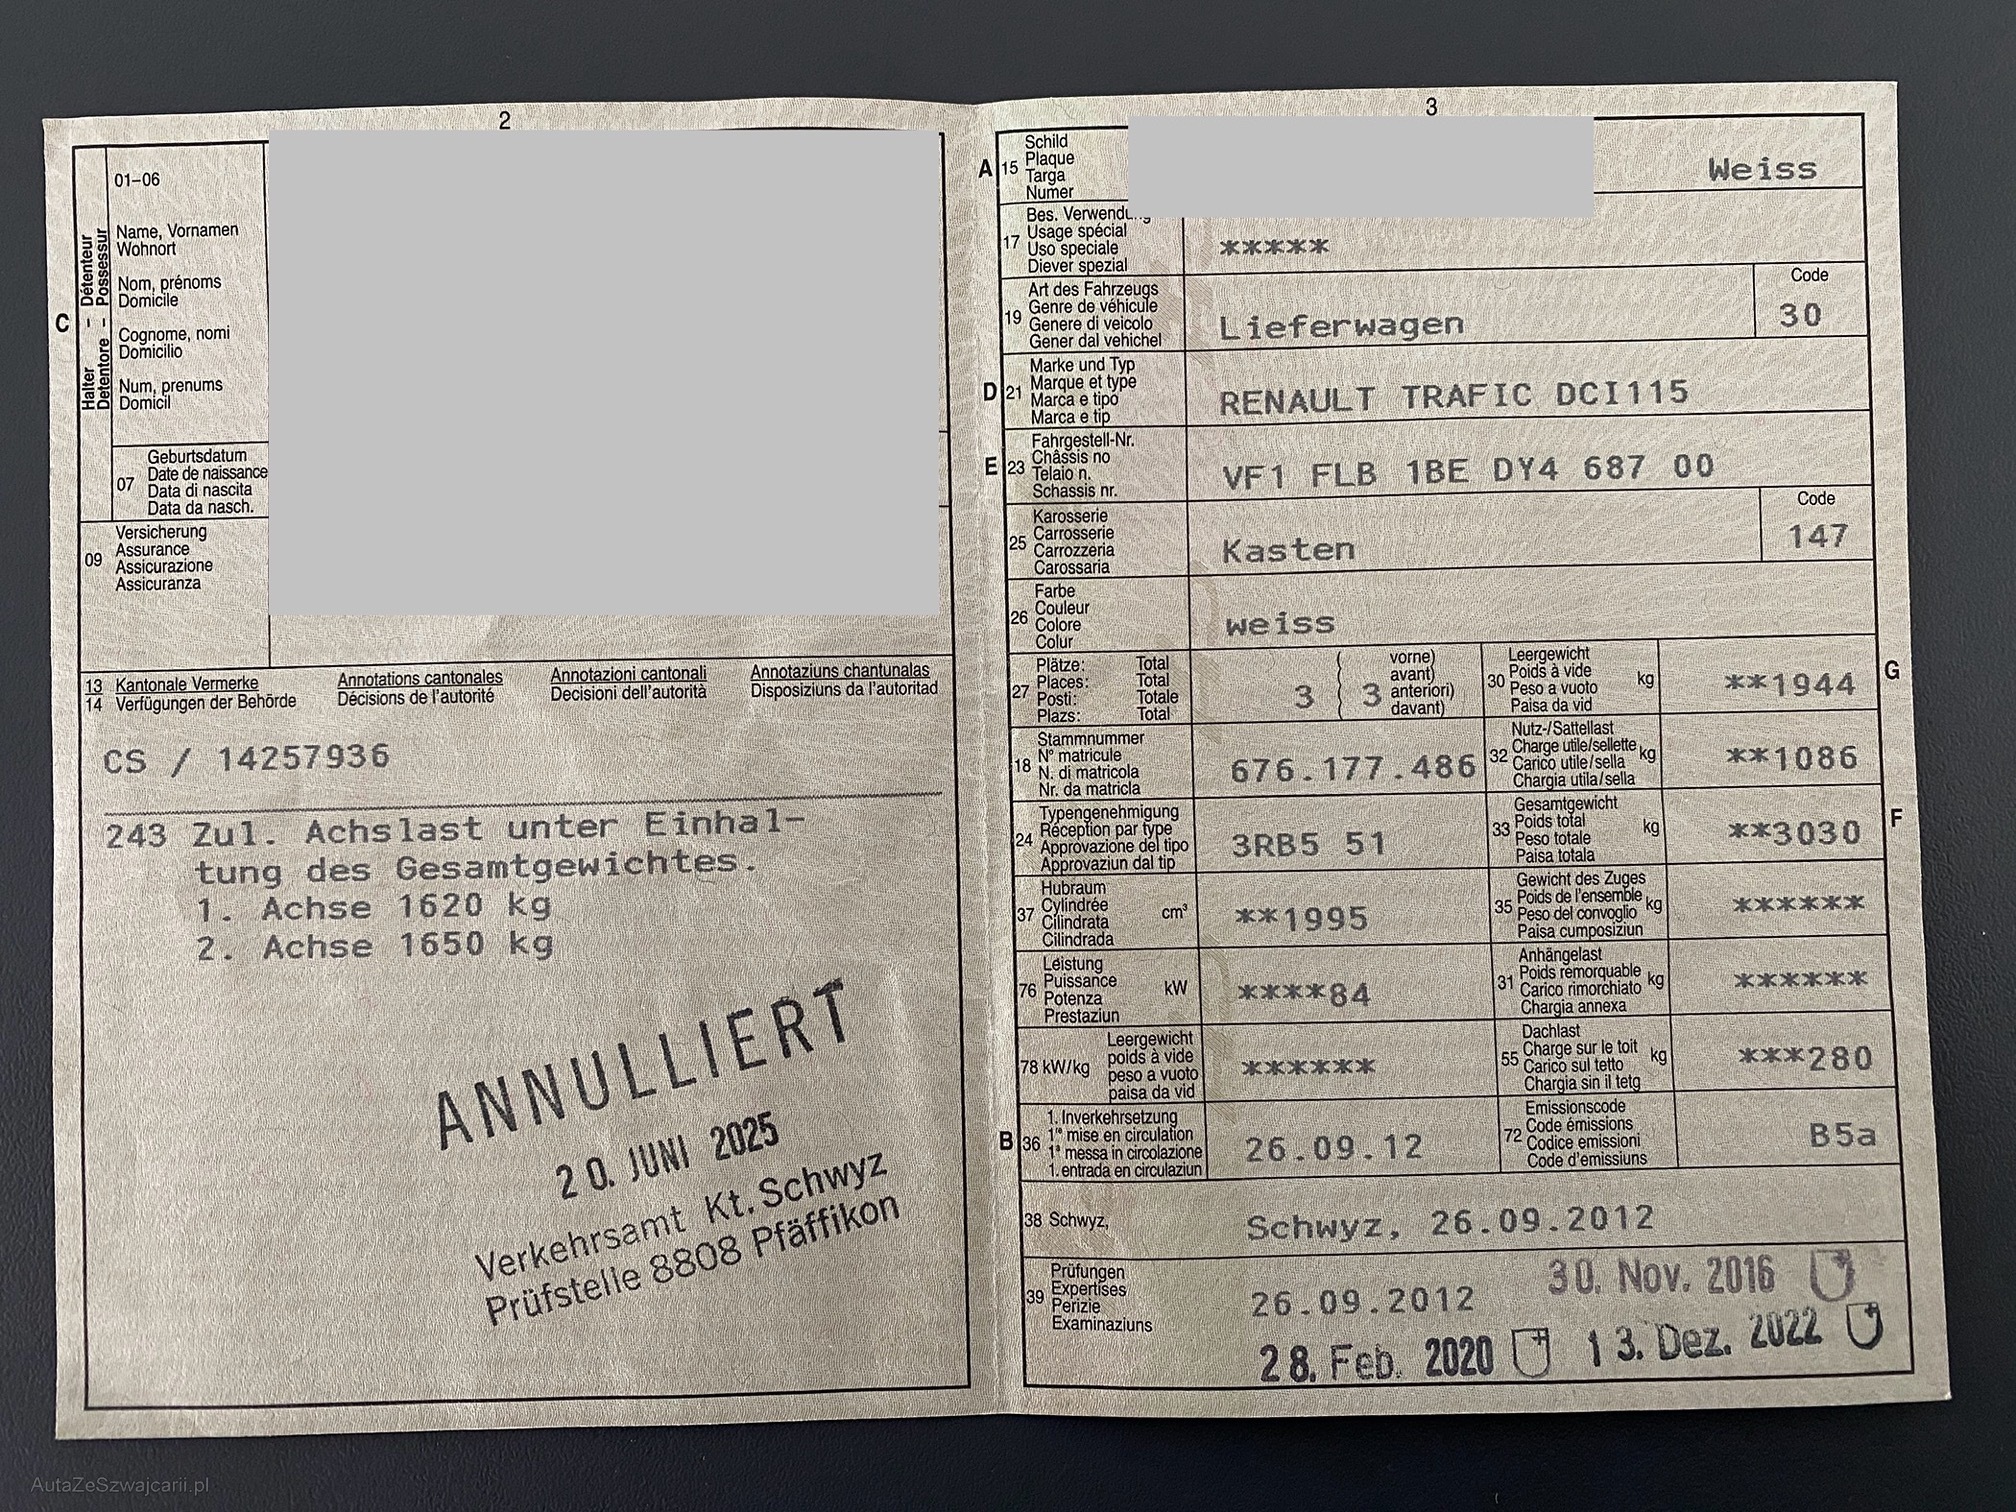 2
C
Halter - Détenteur
Detentore - Possessur
01–06
Name, Vornamen
Wohnort
Nom, prénoms
Domicile
Cognome, nomi
Domicilio
Num, prenums
Domicil
07
Geburtsdatum
Date de naissance
Data di nascita
Data da nasch.
09
Versicherung
Assurance
Assicurazione
Assicuranza
13 Kantonale Vermerke Annotations cantonales Annotazioni cantonali Annotaziuns chantunalas
14 Verfügungen der Behörde Décisions de l'autorité Decisioni dell'autorità Disposiziuns da l'autoritad
CS / 14257936
243 Zul. Achslast unter Einhal-
tung des Gesamtgewichtes.
1. Achse 1620 kg
2. Achse 1650 kg
ANNULLIERT
20. JUNI 2025
Verkehrsamt Kt. Schwyz
Prüfstelle 8808 Pfäffikon
3
A 15
Schild
Plaque
Targa
Numer
Weiss
17
Bes. Verwendung
Usage spécial
Uso speciale
Diever spezial
*****
19
Art des Fahrzeugs
Genre de véhicule
Genere di veicolo
Gener dal vehichel
Lieferwagen
Code
30
D 21
Marke und Typ
Marque et type
Marca e tipo
Marca e tip
RENAULT TRAFIC DCI115
E 23
Fahrgestell-Nr.
Châssis no
Telaio n.
Schassis nr.
VF1 FLB 1BE DY4 687 00
25
Karosserie
Carrosserie
Carrozzeria
Carossaria
Kasten
Code
147
26
Farbe
Couleur
Colore
Colur
weiss
27
Plätze: Total
Places: Total
Posti: Totale
Plazs: Total
3 ( 3
vorne)
avant)
anteriori)
davant)
30
Leergewicht
Poids à vide
Peso a vuoto
Paisa da vid
kg
**1944
G
18
Stammnummer
N° matricule
N. di matricola
Nr. da matricla
676.177.486
32
Nutz-/Sattellast
Charge utile/sellette
Carico utile/sella
Chargia utila/sella
kg
**1086
24
Typengenehmigung
Réception par type
Approvazione del tipo
Approvaziun dal tip
3RB5 51
33
Gesamtgewicht
Poids total
Peso totale
Paisa totala
kg
**3030
F
37
Hubraum
Cylindrée
Cilindrata
Cilindrada
cm³
**1995
35
Gewicht des Zuges
Poids de l'ensemble
Peso del convoglio
Paisa cumposiziun
kg
******
76
Leistung
Puissance
Potenza
Prestaziun
kW
****84
31
Anhängelast
Poids remorquable
Carico rimorchiato
Chargia annexa
kg
******
78 kW/kg
Leergewicht
poids à vide
peso a vuoto
paisa da vid
******
55
Dachlast
Charge sur le toit
Carico sul tetto
Chargia sin il tetg
kg
***280
B 36
1. Inverkehrsetzung
1re mise en circulation
1a messa in circolazione
1. entrada en circulaziun
26.09.12
72
Emissionscode
Code émissions
Codice emissioni
Code d'emissiuns
B5a
38 Schwyz,
Schwyz, 26.09.2012
39
Prüfungen
Expertises
Perizie
Examinaziuns
26.09.2012
30. Nov. 2016
28. Feb. 2020
13. Dez. 2022
AutaZeSzwajcarii.pl